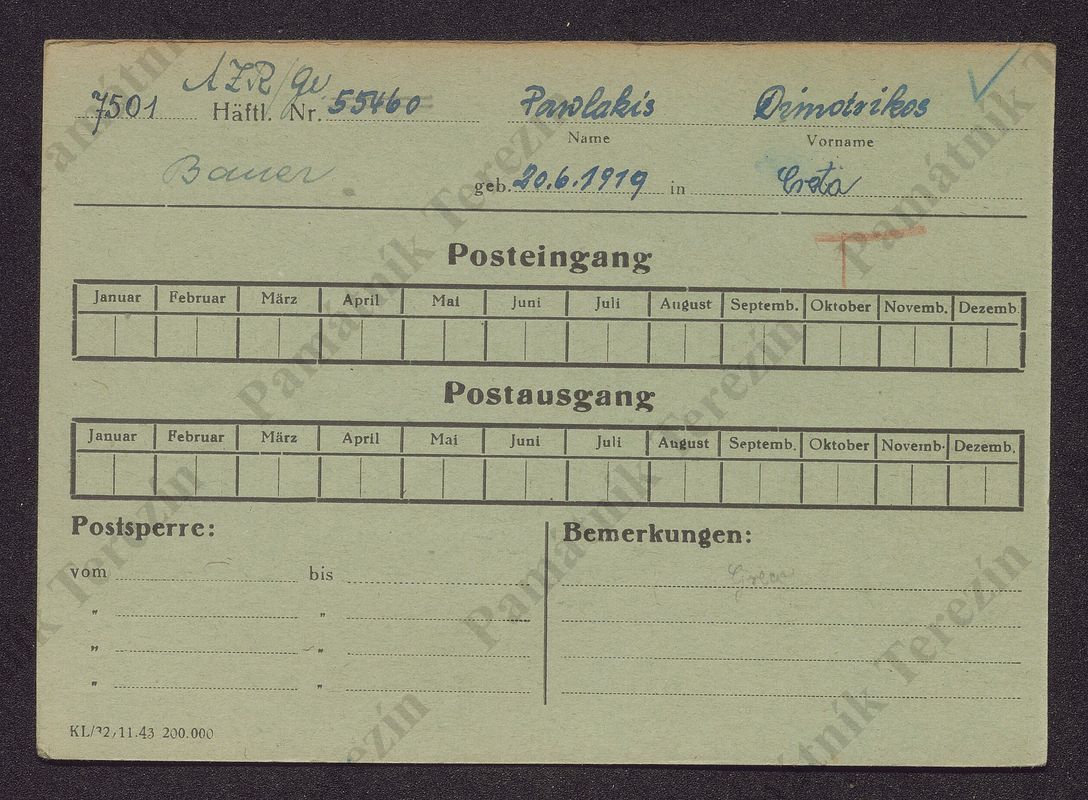 AZR/Ge
7501 Häftl. Nr. 55460 Pawlakis Dimotrikos
Name Vorname
Bauer geb. 20.6.1919 in Creta
Posteingang
Januar Februar März April Mai Juni Juli August Septemb. Oktober Novemb. Dezemb.
Postausgang
Januar Februar März April Mai Juni Juli August Septemb. Oktober Novemb. Dezemb.
Postsperre: Bemerkungen:
vom bis
" "
" "
" "
KL/32/11.43 200.000
Památník Terezín